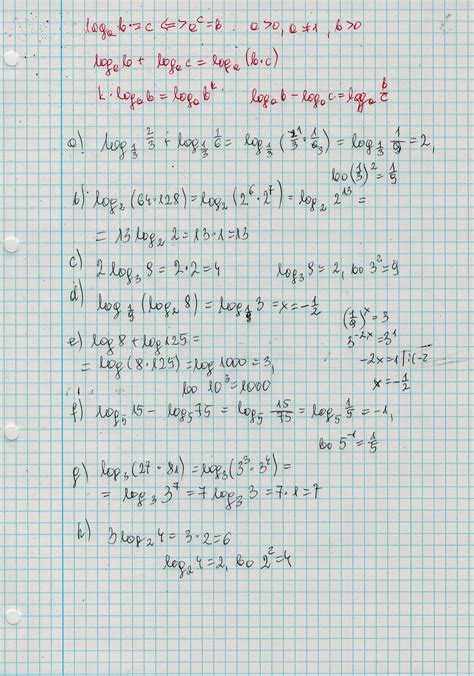 logₐb = c ⇔ aᶜ = b    a>0, a≠1, b>0
logₐb + logₐc = logₐ(b·c)
k·logₐb = logₐbᵏ    logₐb - logₐc = logₐ b/c
a) log_{1/3} 2/3 + log_{1/3} 1/6 = log_{1/3} (2/3 · 1/6) = log_{1/3} 1/9 = 2,
bo (1/3)² = 1/9
b) log₂(64·128) = log₂(2⁶·2⁷) = log₂ 2¹³ =
= 13 log₂ 2 = 13·1 = 13
c) 2 log₃ 9 = 2·2 = 4    log₃ 9 = 2, bo 3² = 9
d) log_{1/9} (log₂ 8) = log_{1/9} 3 = x = -1/2
(1/9)ˣ = 3
3^{-2x} = 3¹
-2x = 1 |:(-2
x = -1/2
e) log 8 + log 125 =
= log (8·125) = log 1000 = 3,
bo 10³ = 1000
f) log₅ 15 - log₅ 75 = log₅ 15/75 = log₅ 1/5 = -1,
bo 5⁻¹ = 1/5
g) log₃(27·81) = log₃(3³·3⁴) =
= log₃ 3⁷ = 7 log₃ 3 = 7·1 = 7
h) 3 log₂ 4 = 3·2 = 6
log₂ 4 = 2, bo 2² = 4